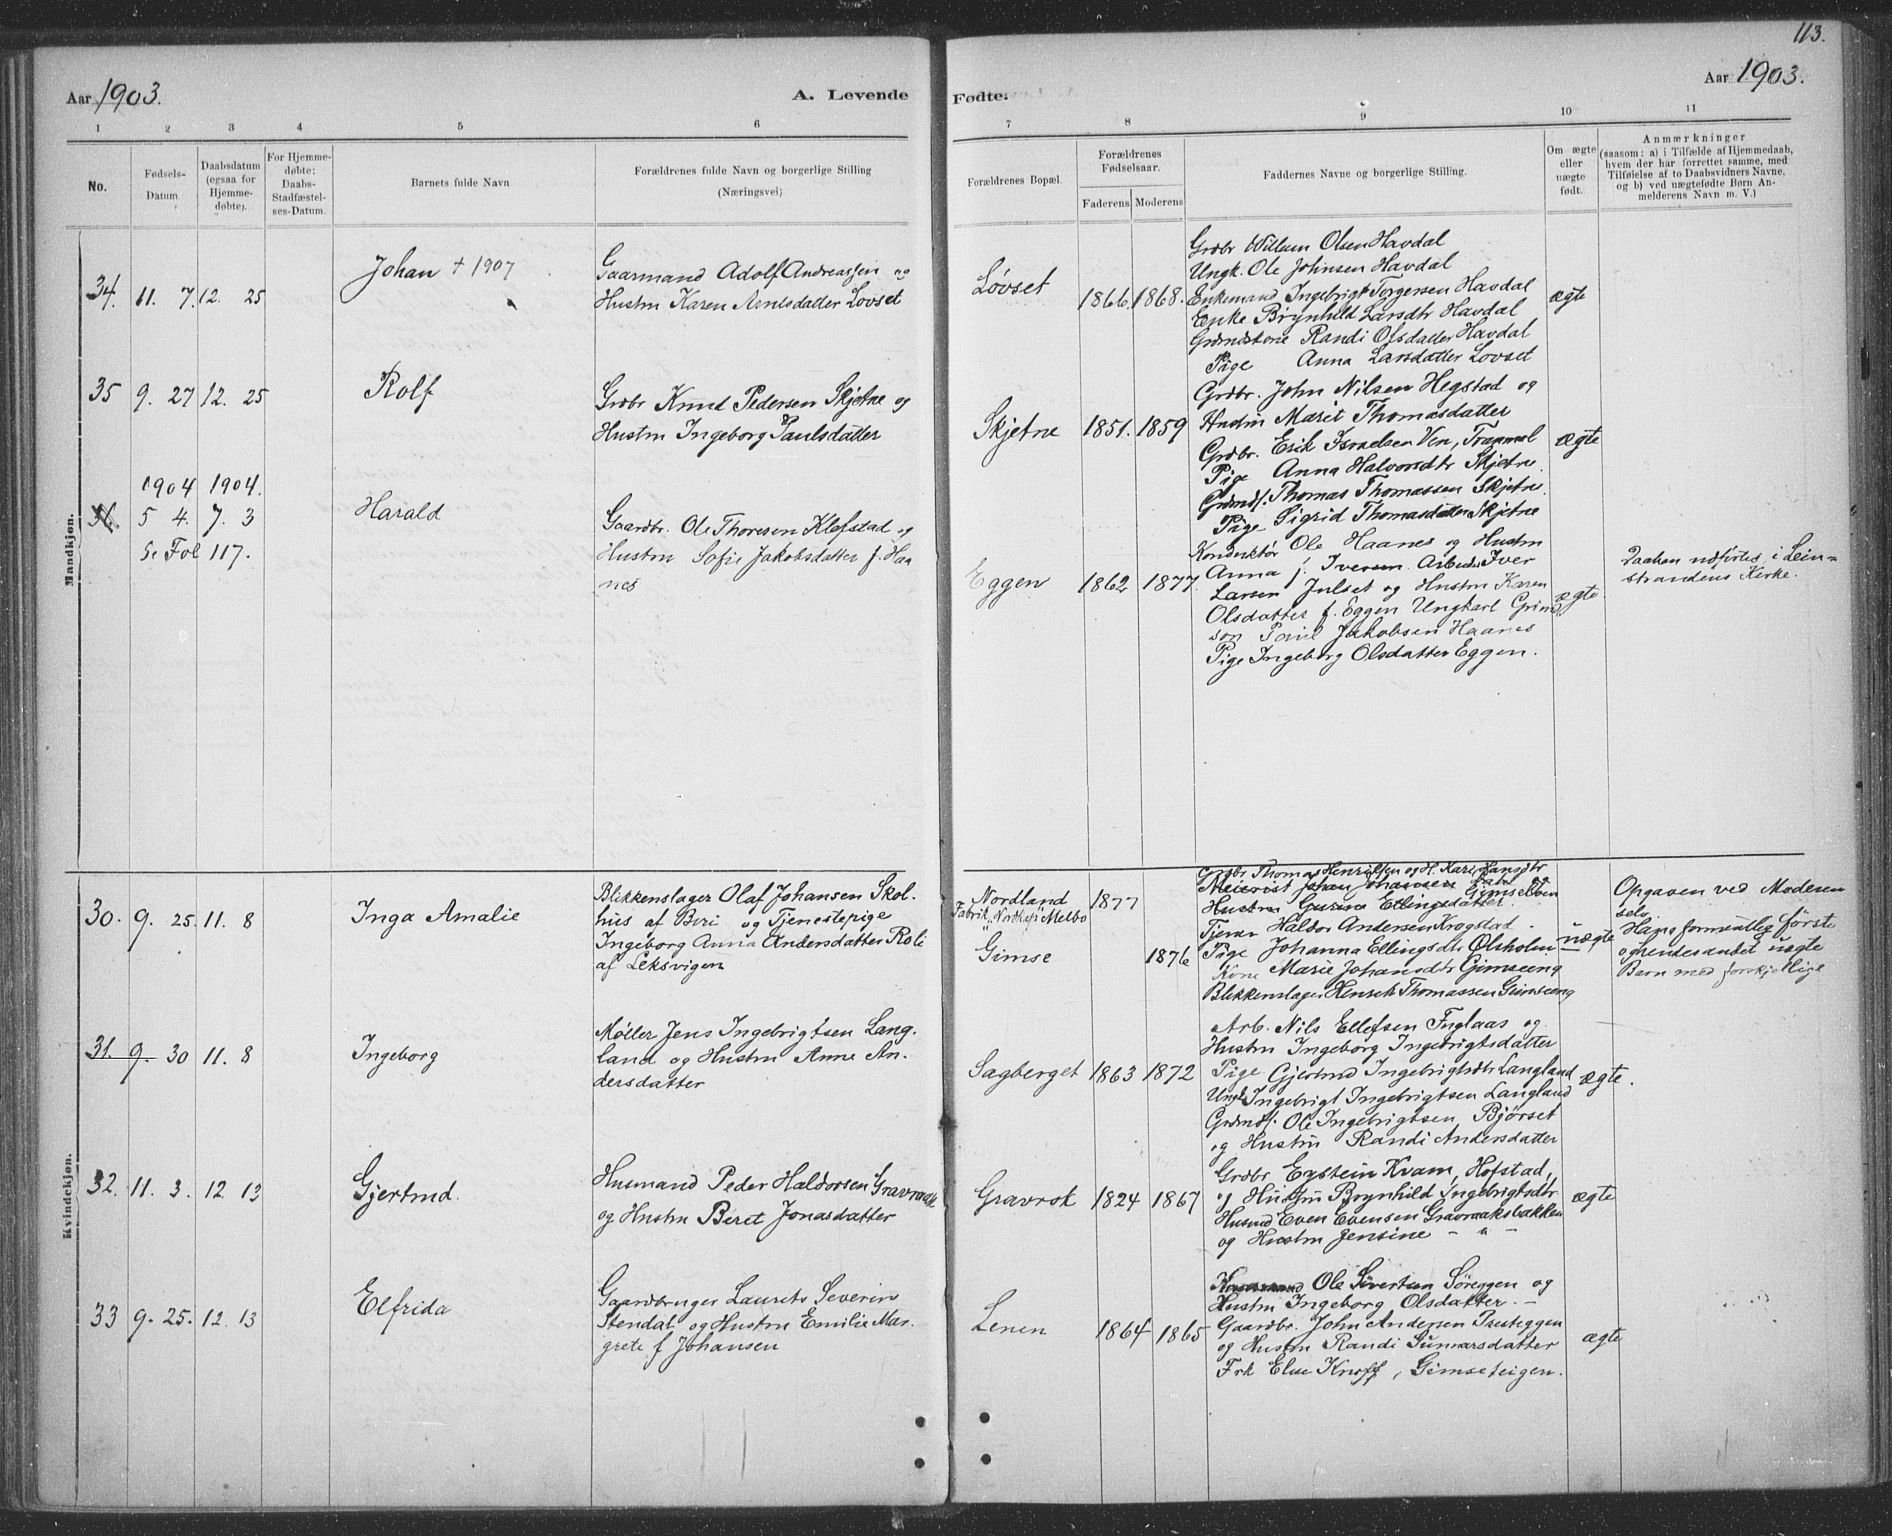 113.
Aar 1903.
A. Levende
Fødte.
Aar 1903.
1 2 3 4 5 6 7 8 9 10 11
No.
Fødsels-
Datum
Daabsdatum
(ogsaa for
Hjemme-
døbte).
For Hjemme-
døbte:
Daabs-
Stadfæstel-
ses-Datum.
Barnets fulde Navn
Forældrenes fulde Navn og borgerlige Stilling
(Næringsvei)
Forældrenes Bopæl.
Forældrenes
Fødselsaar.
Faderens Moderens
Faddernes Navne og borgerlige Stilling.
Om ægte
eller
uægte
født.
Anmærkninger
(saasom: a) i Tilfælde af Hjemmedaab,
hvem der har forrettet samme, med
Tilføielse af to Daabsvidners Navne,
og b) ved uægtefødte Børn An-
melderens Navn m. V.)
Mandkjøn.
34. 11. 7. 12. 25
Johan + 1907
Gaarmand Adolf Andreassen og
Hustru Karen Arntsdatter Løvset
Løvset
1866 1868.
Grdbr Willum Olsen Havdal
Ungk. Ole Johnsen Havdal
Enkemand Ingebrigt Torgersen Havdal
Enke Brynhild Larsdtr Havdal
Randi Olsdatter Havdal
Pige Anna Larsdatter Løvset
ægte
35 9. 27 12. 25
Rolf
Grdbr Knud Pedersen Skjetne og
Hustru Ingeborg Paulsdatter
Skjetne
1851. 1859
Grdbr. John Nilsen Hegstad og
Hustru Marit Thomasdatter
Grdbr. Erik Ven,
Pige Anna Halvorsdtr Skjetne.
Grdmdf. Thomas Thomassen Skjetne.
Pige Sigrid Thomasdatter Skjetne
ægte
1904 1904.
36. 5 4. 7. 3
Se Fol 117.
Harald
Gaardbr. Ole Thoresen Klefstad og
Hustru Sofie Jakobsdatter f. Haa
nes
Eggen
1862 1877.
Konduktør Ole Haanes og Hustru
Anna f. Iversen. Arbeider Iver
Larsen Julset og Hustru Karen
Olsdatter f. Eggen Ungkarl Grind
son Paul Jakobsen Haanes
Pige Ingeborg Olsdatter Eggen.
ægte
Daaben udførtes i Lein-
strandens Kirke.
Kvindekjøn.
30. 9. 25. 11. 8
Inga Amalie
Blikkenslager Olaf Johansen Skol-
hies af Biri og Tjenestepige
Ingeborg Anna Andersdatter Roli
af Leksvigen
Nordland
Fabrik Melbo
Gimse
1877
1876
Grdbr Thomas Henriksen og H. Kari Hansdtr
Meierist Johan Johansen
Hustru Gurine Ellingsdatter.
Halvor Andersen Krogstad
Pige Johanna Ellingsdtr Ølsholm.
Kone Marie Johansdtr Gimseeng
Blikkenslager Henrik Thomassen Gimseeng
uægte
Opgaven ved Moderen
selv.
Hans formentlig første
og hendes andet uægte
Barn med forskjellige
31. 9. 30 11. 8
Ingeborg
Møller Jens Ingebrigtsen Lang-
land og Hustru Anne An-
dersdatter
Sagberget
1863 1872
Arb. Nils Ellefsen Fuglaas og
Hustru Ingeborg Ingebrigtsdatter
Pige Gjertrud Ingebrigtsdtr Langland
Ungk. Ingebrigt Ingebrigtsen Langland
Grdmdf. Ole Ingebrigtsen Bjørset
og Hustru Randi Andersdatter
ægte.
32. 11. 3. 12 13
Gjertrud.
Husmand Peder Haldorsen Gravraak
og Hustru Beret Jonasdatter
Gravrok
1824 1867
Grdbr. Eystein Kvam, Hofstad,
og Hustru Brynhild Ingebrigtsdtr
Husmd Even Evensen Gravraaksbakken
og Hustru Jensine - " -
ægte
33 9. 25. 12. 13
Elfrida
Gaardbruger Laurets Severin
Stendal og Hustru Emilie Mar-
grete f Johansen
Lenen
1864 1865
Ole Sivertsen Søreggen og
Hustru Ingeborg Olsdatter. -
Gaardbr. John Andersen Presteggen
og Hustru Randi Gunnarsdatter
Frk Elise Knoff, Gimseteigen.
ægte